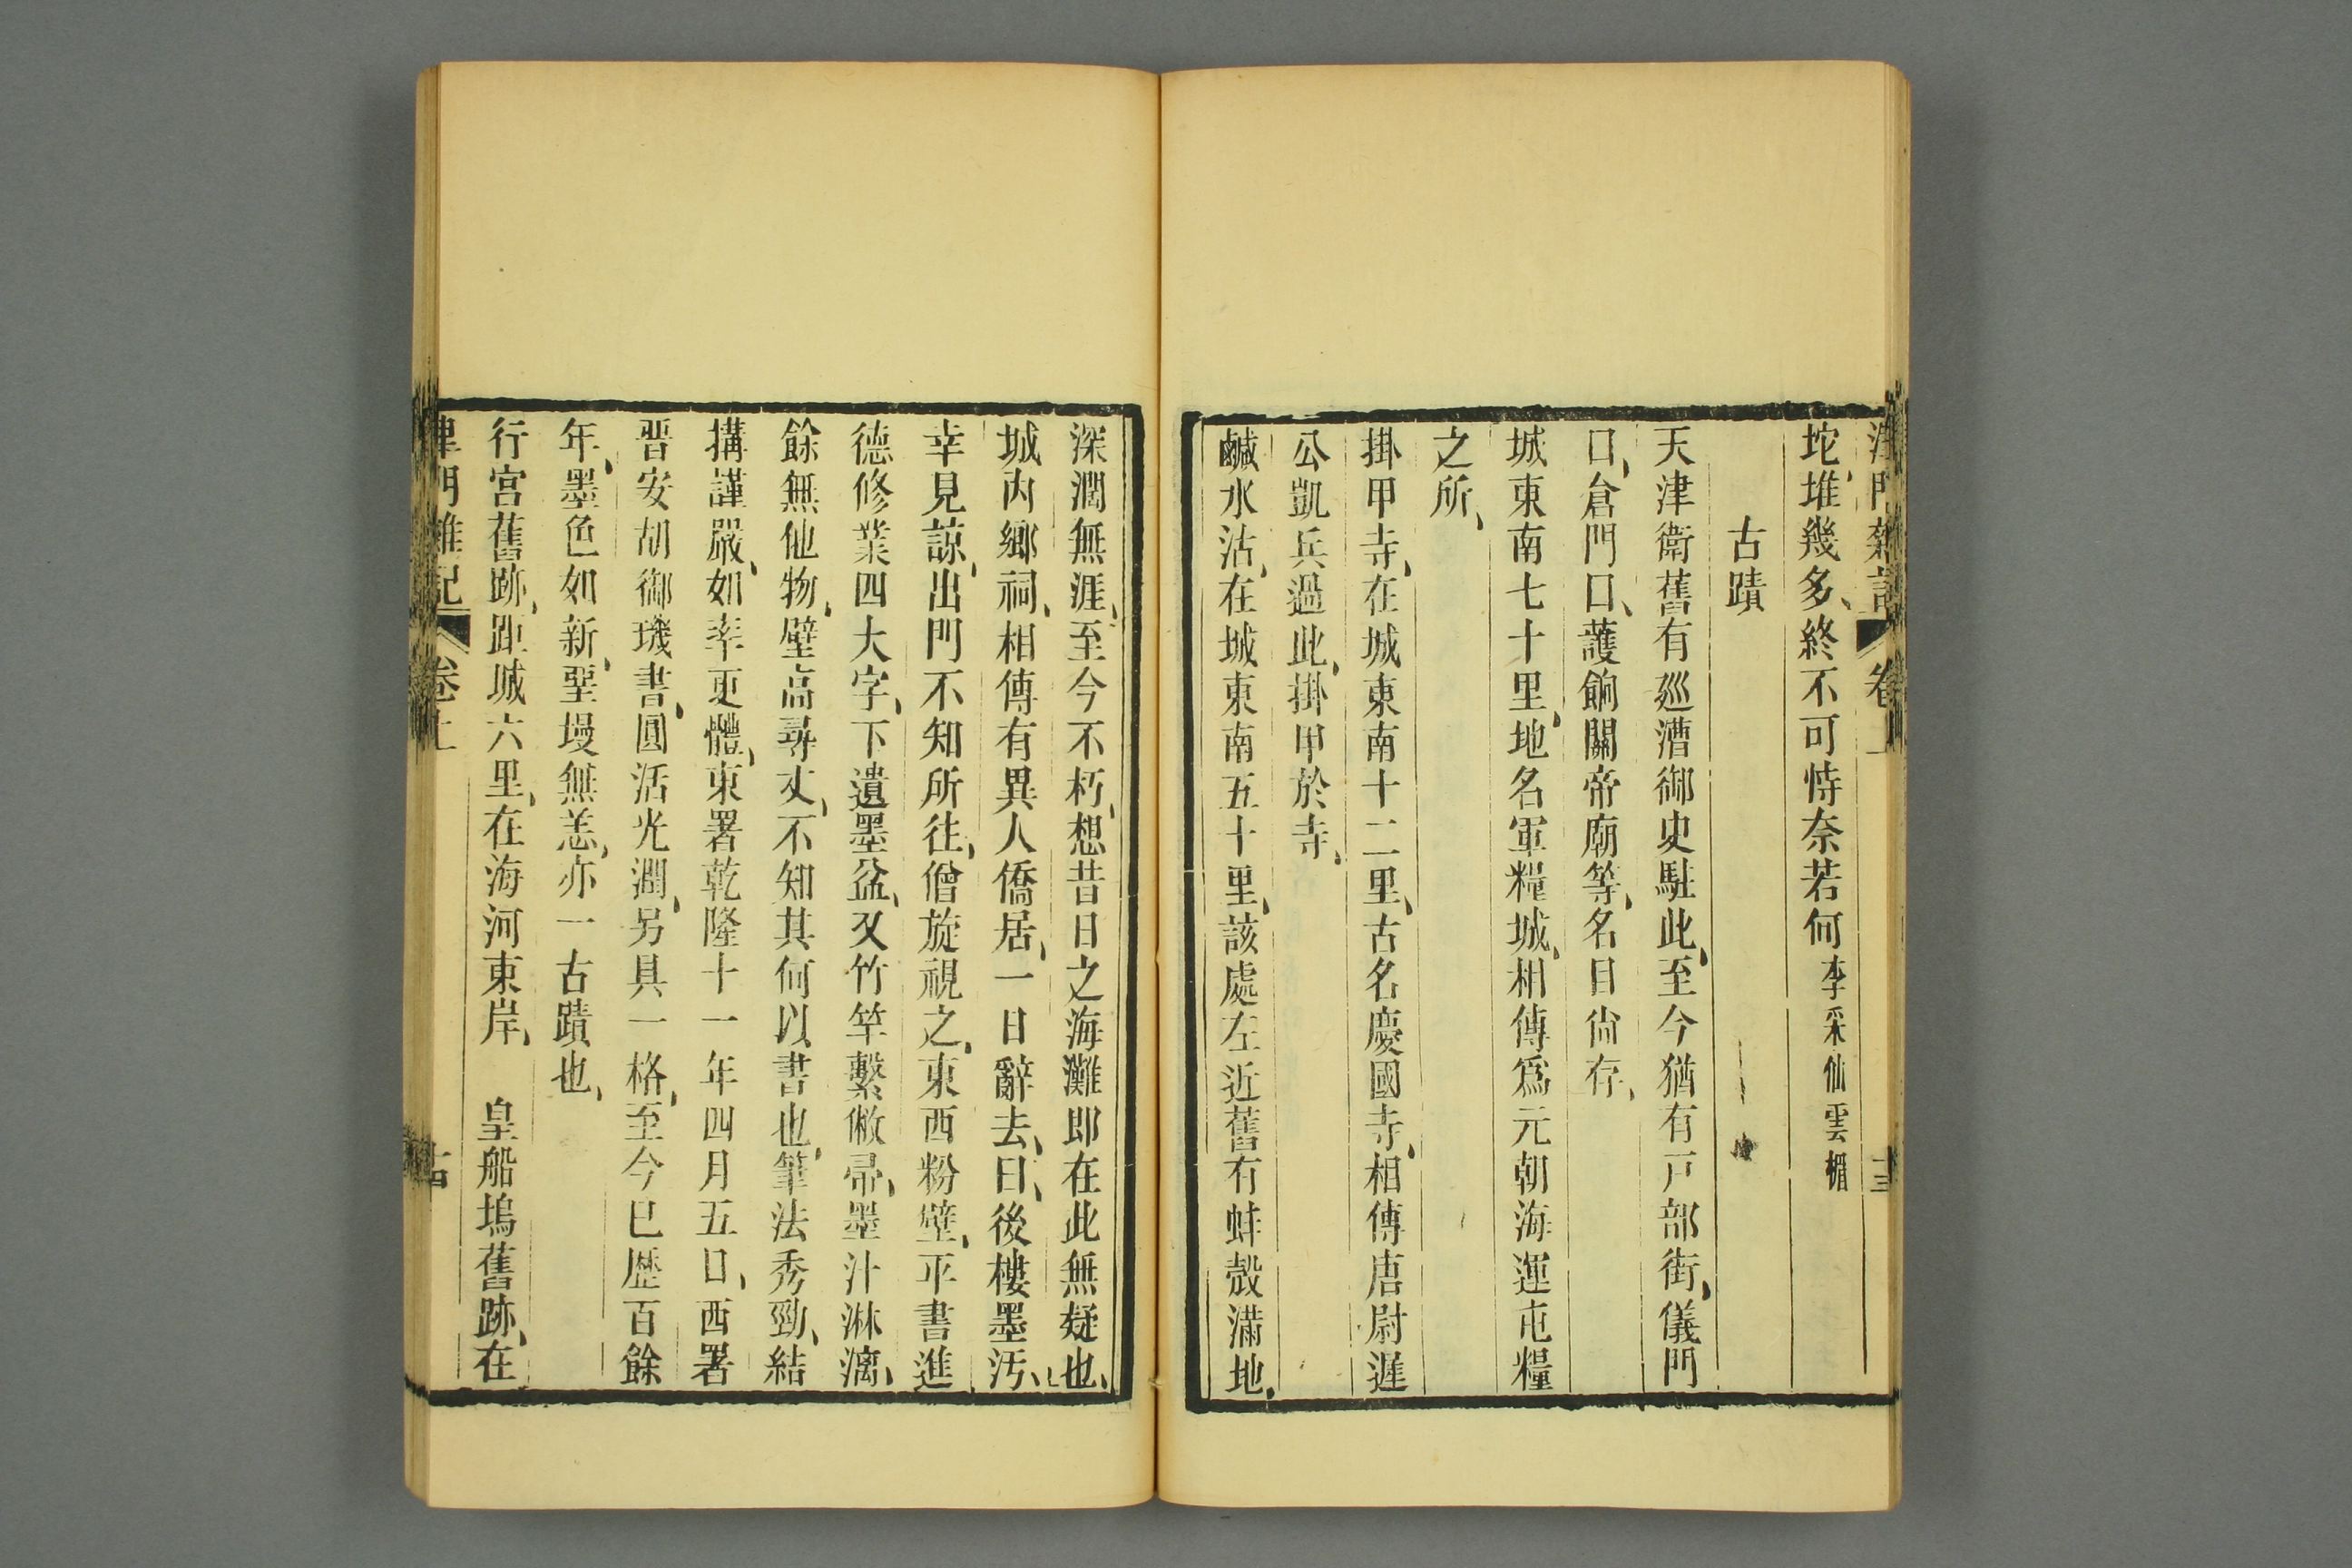 津門雜記 卷上 十三
坨、堆幾多、終不可恃奈若何李采仙雲楣
古蹟
天津衛舊有巡漕御史駐此、至今猶有戸部街、儀門
口、倉門口、護餉關帝廟等、名目尙存、
城東南七十里、地名軍糧城、相傳爲元朝海運屯糧
之所、
掛甲寺、在城東南十二里、古名慶國寺、相傳唐尉遲
公凱兵過此、掛甲於寺、
鹹水沽、在城東南五十里、該處左近舊有蚌殼滿地、
深濶無涯、至今不朽、想昔日之海灘即在此無疑也、
城內鄉祠、相傳有異人僑居、一日辭去、曰、後樓墨汚、
幸見諒、出門不知所往、僧旋視之、東西粉壁、平書進
德修業四大字、下遺墨盆、又竹竿繫敝帚、墨汁淋漓、
餘無他物、壁高尋丈、不知其何以書也、筆法秀勁、結
搆謹嚴、如率更體、東署乾隆十一年四月五日、西署
晋安胡御璣書、圓活光潤、另具一格、至今已歷百餘
年、墨色如新、堊墁無恙、亦一古蹟也、
行宮舊跡、距城六里、在海河東岸、 皇船塢舊跡、在
津門雜記 卷上 十四